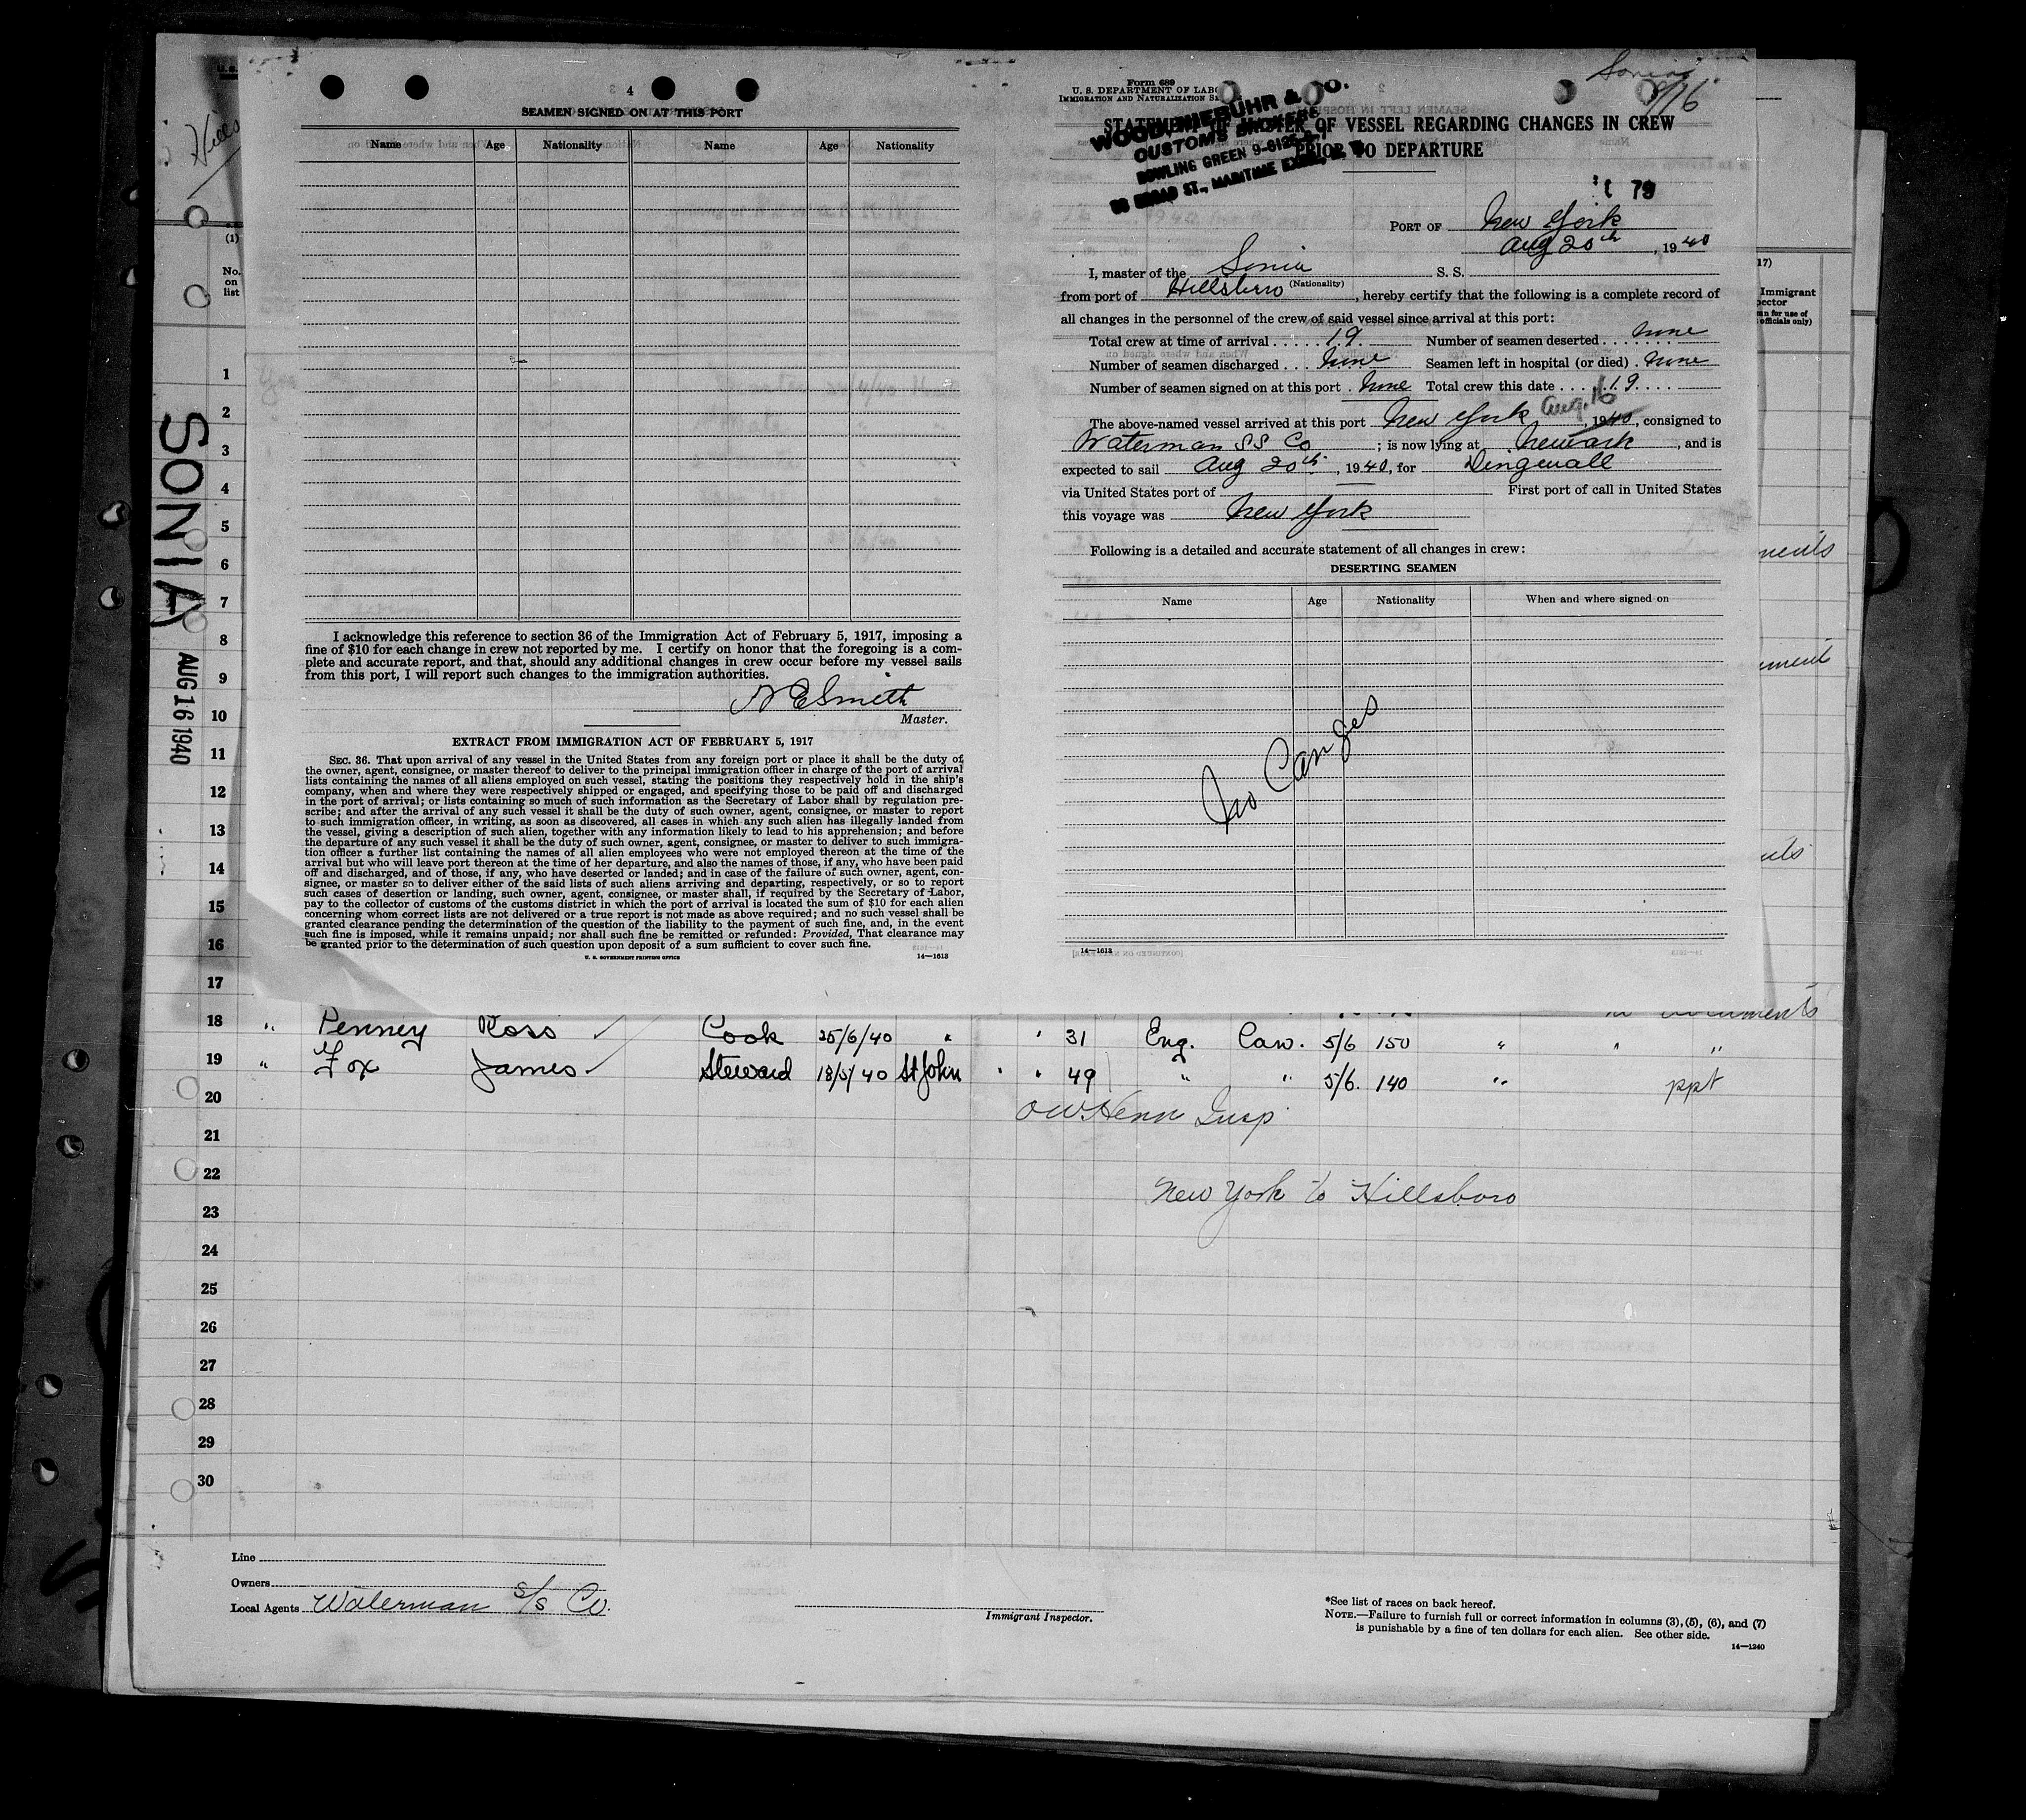 4
SEAMEN SIGNED ON AT THIS PORT
Name Age Nationality Name Age Nationality
I acknowledge this reference to section 36 of the Immigration Act of February 5, 1917, imposing a
fine of $10 for each change in crew not reported by me. I certify on honor that the foregoing is a com-
plete and accurate report, and that, should any additional changes in crew occur before my vessel sails
from this port, I will report such changes to the immigration authorities.
N E Smith
Master.
EXTRACT FROM IMMIGRATION ACT OF FEBRUARY 5, 1917
SEC. 36. That upon arrival of any vessel in the United States from any foreign port or place it shall be the duty of
the owner, agent, consignee, or master thereof to deliver to the principal immigration officer in charge of the port of arrival
lists containing the names of all aliens employed on such vessel, stating the positions they respectively hold in the ship's
company, when and where they were respectively shipped or engaged, and specifying those to be paid off and discharged
in the port of arrival; or lists containing so much of such information as the Secretary of Labor shall by regulation pre-
scribe; and after the arrival of any such vessel it shall be the duty of such owner, agent, consignee, or master to report
to such immigration officer, in writing, as soon as discovered, all cases in which any such alien has illegally landed from
the vessel, giving a description of such alien, together with any information likely to lead to his apprehension; and before
the departure of any such vessel it shall be the duty of such owner, agent, consignee, or master to deliver to such immigra-
tion officer a further list containing the names of all alien employees who were not employed thereon at the time of the
arrival but who will leave port thereon at the time of her departure, and also the names of those, if any, who have been paid
off and discharged, and of those, if any, who have deserted or landed; and in case of the failure of such owner, agent, con-
signee, or master so to deliver either of the said lists of such aliens arriving and departing, respectively, or so to report
such cases of desertion or landing, such owner, agent, consignee, or master shall, if required by the Secretary of Labor,
pay to the collector of customs of the customs district in which the port of arrival is located the sum of $10 for each alien
concerning whom correct lists are not delivered or a true report is not made as above required; and no such vessel shall be
granted clearance pending the determination of the question of the liability to the payment of such fine, and, in the event
such fine is imposed, while it remains unpaid; nor shall such fine be remitted or refunded: Provided, That clearance may
be granted prior to the determination of such question upon deposit of a sum sufficient to cover such fine.
U. S. GOVERNMENT PRINTING OFFICE 14—1613
Form 689
U. S. DEPARTMENT OF LABO
IMMIGRATION AND NATURALIZATION S
Sonia
8/16
WOOD, NIEBUHR & CO.
CUSTOMS BROKERS
BOWLING GREEN 9-
BROAD ST., MARITIME
OF VESSEL REGARDING CHANGES IN CREW
PRIOR TO DEPARTURE
79
PORT OF New York
Aug 20th, 1940
I, master of the Sonia S. S.
(Nationality)
from port of Hillsboro, hereby certify that the following is a complete record of
all changes in the personnel of the crew of said vessel since arrival at this port:
Total crew at time of arrival 19. Number of seamen deserted none
Number of seamen discharged None Seamen left in hospital (or died) none
Number of seamen signed on at this port None Total crew this date 19.
The above-named vessel arrived at this port New York Aug. 16, 1940, consigned to
Waterman SS Co; is now lying at Newark, and is
expected to sail Aug 20th, 1940, for Dingwall
via United States port of First port of call in United States
this voyage was New York
Following is a detailed and accurate statement of all changes in crew:
DESERTING SEAMEN
Name Age Nationality When and where signed on
No Canges
14—1613
SONIA
AUG 16 1940
Hills
(1)
No. on list
17)
Immigrant
1
2
3
4
5
6
7
8
9
10
11
12
13
14
15
16
17
18 " Penney Ross Cook 25/6/40 " " 31 Eng. Can. 5/6 150 " " "
19 " Fox James Steward 18/5/40 St John " " 49 " " 5/6. 140 " ppt
20
21
22
23
24
25
26
27
28
29
30
OW Henn Insp
New York to Hillsboro
Line
Owners
Local Agents Waterman S/S Co.
Immigrant Inspector.
*See list of races on back hereof.
NOTE.—Failure to furnish full or correct information in columns (3), (5), (6), and (7)
is punishable by a fine of ten dollars for each alien. See other side.
14—1240